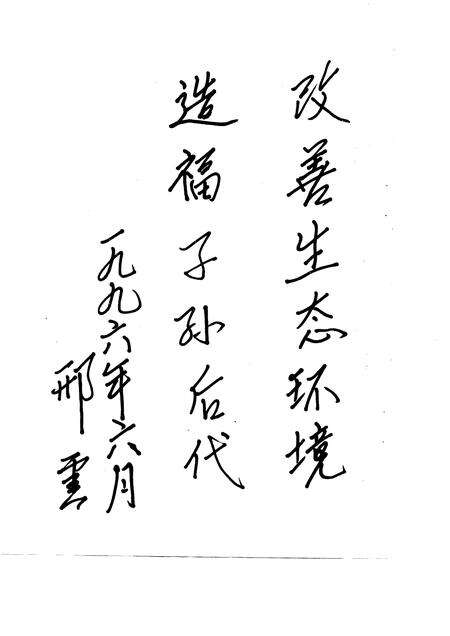 改善生态环境
造福子孙后代
一九九六年六月
邢雲